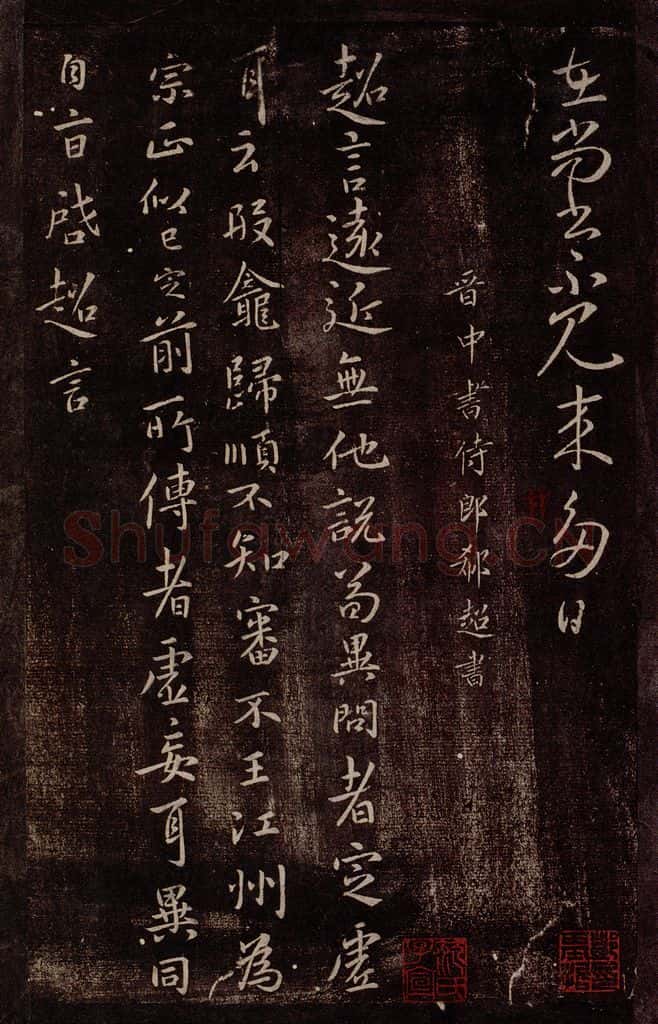 在尚書不見來多日
晉中書侍郎郗超書
超言遠近無他說苟異問者定虛
耳云段龕歸順不知審不王江州為
宗正似已定前所傳者虛妄耳異同
自啓超言
Shufawang.CN